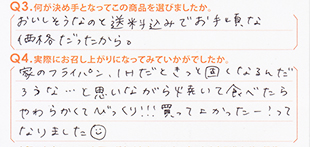 Q3.何が決め手となってこの商品を選びましたか。
おいしそうなのと送料込みでお手頃な
価格だったから。
Q4.実際にお召し上がりになってみていかがでしたか。
家のフライパン、IHだときっと固くなるんだ
ろうな…と思いながら焼いて食べたら
やわらかくてびっくり!!!買ってよかったー!って
なりました☺